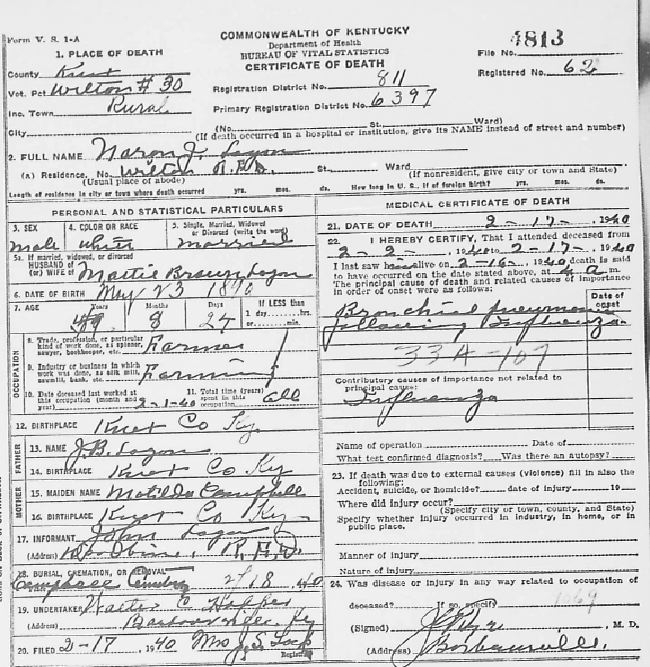 Form V. S. 1-A
COMMONWEALTH OF KENTUCKY
Department of Health
BUREAU OF VITAL STATISTICS
CERTIFICATE OF DEATH
File No. 4813
Registered No. 62
1. PLACE OF DEATH
County Knox
Vot. Pct Wilton # 30
Inc. Town Rural
Registration District No. 811
Primary Registration District No. 6397
City
(No. St. Ward)
(If death occurred in a hospital or institution, give its NAME instead of street and number)
2. FULL NAME J.
(A) Residence. No. Wilton R.F.D. St., Ward
(Usual place of abode) (If nonresident, give city or town and State)
Length of residence in city or town where death occurred yrs. mos. ds. How long in U. S., if of foreign birth? yrs. mos. ds.
PERSONAL AND STATISTICAL PARTICULARS
3. SEX male
4. COLOR OR RACE white
5. Single, Married, Widowed or Divorced (write the word) married
5a. If married, widowed, or divorced
HUSBAND of
(or) WIFE of
6. DATE OF BIRTH May 23 1870
7. AGE Years Months Days If LESS than
8 1 day, hrs.
or min.
OCCUPATION
8. Trade, profession, or particular kind of work done, as spinner, sawyer, bookkeeper, etc. Farmer
9. Industry or business in which work was done, as silk mill, sawmill, bank, etc. Farming
10. Date deceased last worked at this occupation (month and year) 2-1-40
11. Total time (years) spent in this occupation all
12. BIRTHPLACE Knox Co Ky.
FATHER
13. NAME J.B.
14. BIRTHPLACE Knox Co Ky
MOTHER
15. MAIDEN NAME Matilda Campbell
16. BIRTHPLACE Knox Co Ky
17. INFORMANT John
(Address) R.F.D.
18. BURIAL, CREMATION, OR REMOVAL
Cemetery 2/18 40
19. UNDERTAKER
(Address) Barbourville, Ky
20. FILED 2-17 1940 Mrs J. S.
Registrar
MEDICAL CERTIFICATE OF DEATH
21. DATE OF DEATH 2-17- 1940
22. I HEREBY CERTIFY, That I attended deceased from
2-2- 1940 to 2-17- 1940
I last saw him alive on 2-16- 1940 death is said
to have occurred on the date stated above, at 4 a m.
The principal cause of death and related causes of importance
in order of onset were as follows:
Date of onset
Bronchial pneumonia
following Influenza
33A-107
Contributory causes of importance not related to
principal cause:
Influenza
Name of operation Date of
What test confirmed diagnosis? Was there an autopsy?
23. If death was due to external causes (violence) fill in also the
following:
Accident, suicide, or homicide? date of injury 19
Where did injury occur?
(Specify city or town, county, and State)
Specify whether injury occurred in industry, in home, or in
public place.
Manner of injury
Nature of injury
24. Was disease or injury in any way related to occupation of
deceased? If so, specify
(Signed) M. D.
(Address) Barbourville.